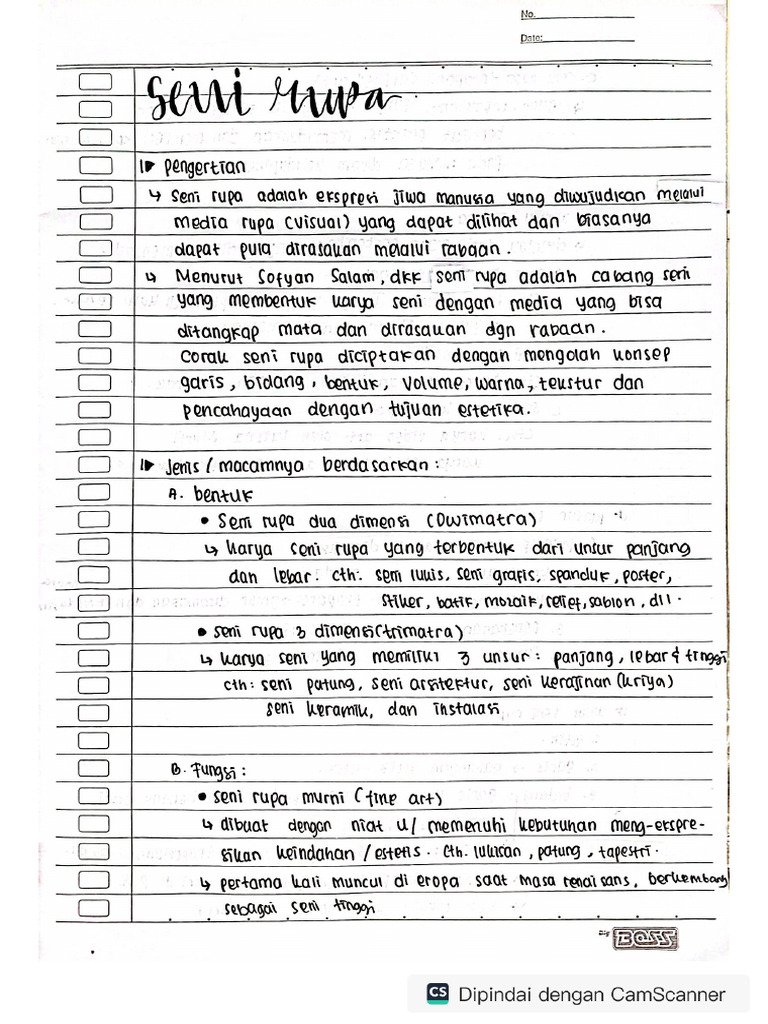 No.
Date:
Seni rupa
1▶ Pengertian
↳ Seni rupa adalah ekspresi jiwa manusia yang diwujudkan melalui
media rupa (visual) yang dapat dilihat dan biasanya
dapat pula dirasakan melalui rabaan.
↳ Menurut Sofyan Salam, dkk seni rupa adalah cabang seni
yang membentuk karya seni dengan media yang bisa
ditangkap mata dan dirasakan dgn rabaan.
Corak seni rupa diciptakan dengan mengolah konsep
garis, bidang, bentuk, volume, warna, tekstur dan
pencahayaan dengan tujuan estetika.
1▶ Jenis / macamnya berdasarkan:
A. bentuk
• Seni rupa dua dimensi (Dwimatra)
↳ karya seni rupa yang terbentuk dari unsur panjang
dan lebar. cth: seni lukis, seni grafis, spanduk, poster,
stiker, batik, mozaik, relief, sablon, dll.
• seni rupa 3 dimensi (trimatra)
↳ karya seni yang memiliki 3 unsur: panjang, lebar & tinggi
cth: seni patung, seni arsitektur, seni kerajinan (kriya)
seni keramik, dan instalasi
B. Fungsi:
• seni rupa murni (fine art)
↳ dibuat dengan niat u/ memenuhi kebutuhan meng-ekspre-
sikan keindahan / estetis. Cth. lukisan, patung, tapestri.
↳ pertama kali muncul di eropa saat masa renaisans, berkembang
sebagai seni tinggi
BOSS
CS Dipindai dengan CamScanner